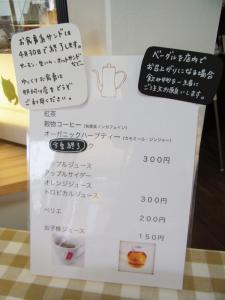 お食事系サンドは
4月30日で終了します。
サーモン・生ハム・ホットサンド
など…
ゆっくりお食事は
をどうぞ
ご利用ください。
ベーグルを店内で
お召し上がりになる場合
飲み物も一緒に
ご注文お願いします。
紅茶
穀物コーヒー
オーガニックハーブティー（カモミール・ジンジャー）
今季終了 ク 300円
アップルジュース
アップルサイダー
オレンジジュース
トロピカルジュース 300円
ペリエ 200円
お子様ジュース 150円